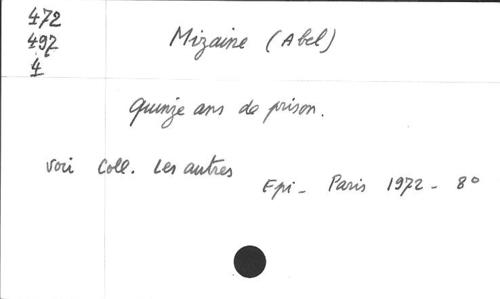 472
497
4
Mizaine (Abel)
Quinze ans de prison.
voir Coll. Les autres
Epi - Paris 1972 - 8°